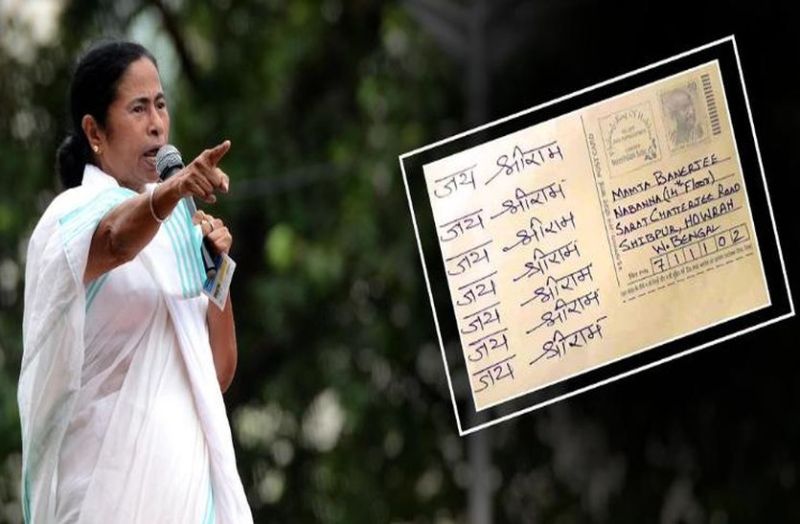 जय श्रीराम
जय श्रीराम
जय श्रीराम
जय श्रीराम
जय श्रीराम
जय श्रीराम
जय श्रीराम
MAMTA BANERJEE
NABANNA (14th Floor)
SARAT CHATTERJEE ROAD
SHIBPUR, HOWRAH
W. BENGAL
711102